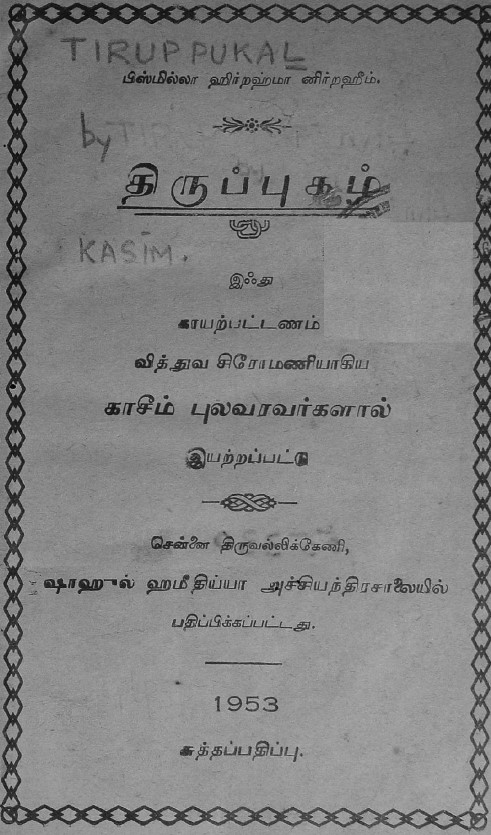 TIRUPPUKAL
பிஸ்மில்லா ஹிர்றஹ்மா னிர்றஹீம்.
by
திருப்புகழ்
KASIM.
இஃது
காயற்பட்டணம்
வித்துவ சிரோமணியாகிய
காசீம் புலவரவர்களால்
இயற்றப்பட்டு
சென்னை திருவல்லிக்கேணி,
ஷாஹுல் ஹமீதிய்யா அச்சியந்திரசாலையில்
பதிப்பிக்கப்பட்டது.
1953
சுத்தப்பதிப்பு.